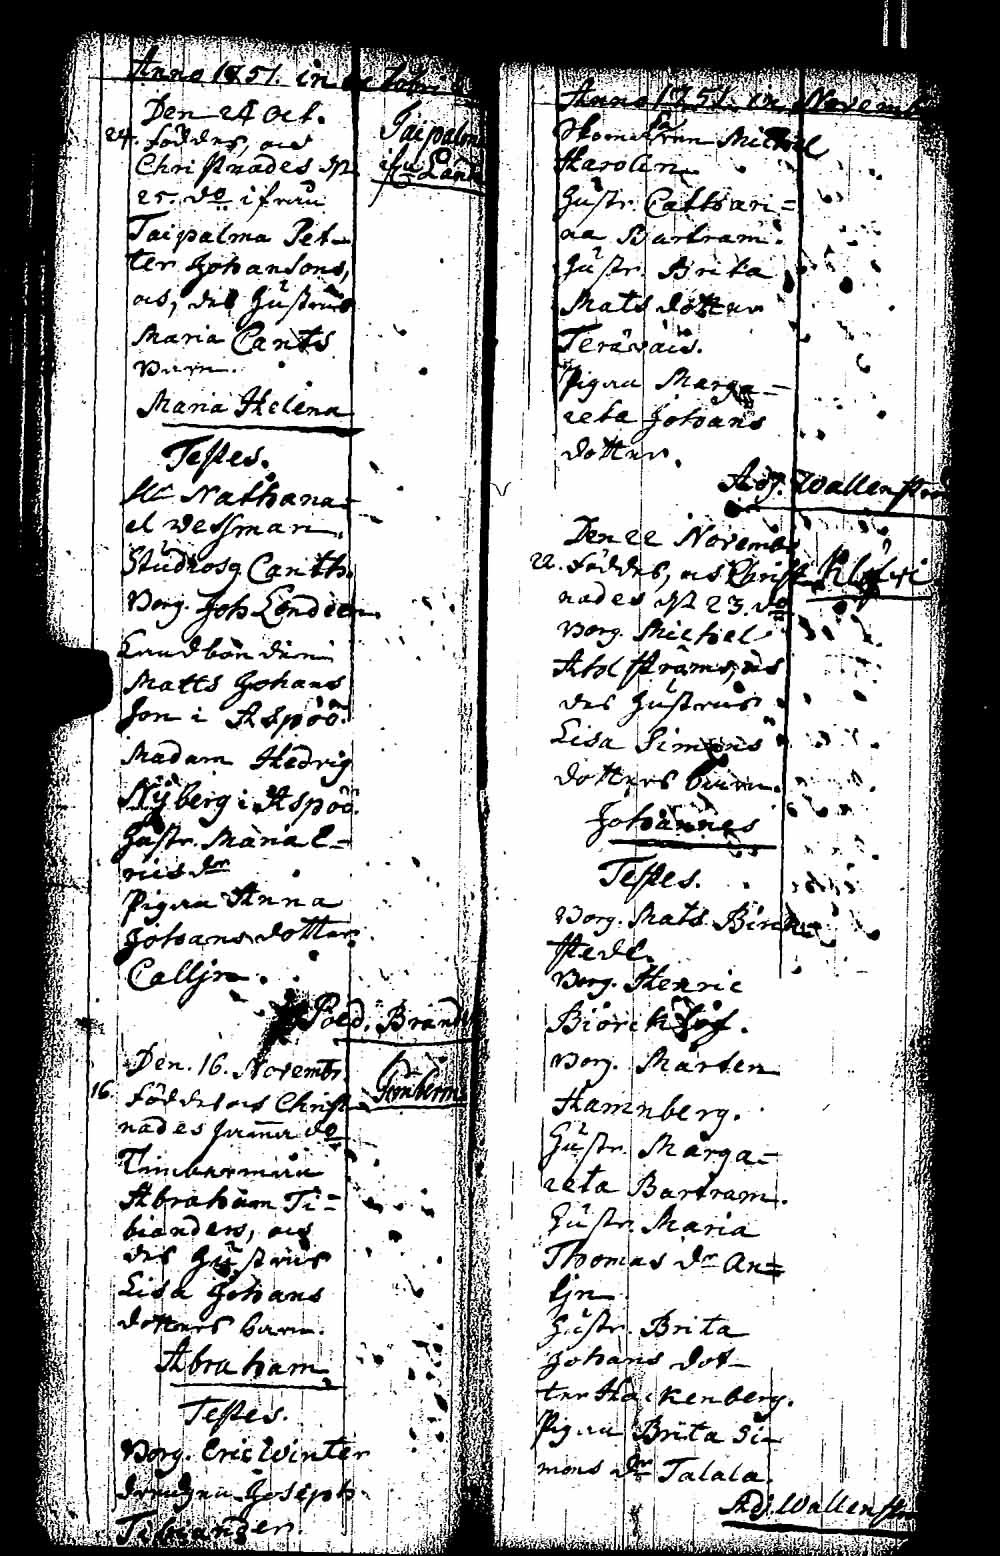 Anno 1751. in octobri
Den 24 Oct.
Taipalma
24. föddes, och
Christnades d.
i fru Land
25. do ifrån
Taipalma Pet-
ter Johansons,
och, des Hustrus
Maria Cants
barn.
Maria Helena
Testes.
Hr Nathana-
el Wessman.
Studiosg Canth.
Borg. Joh Londeen
Landbonden
Matts Johans
son i Aspöö.
Madam Hedvig
Nyberg i Aspöö.
Hustr. Maria E-
rics dr
Pigan Anna
Johans dotter
Calljn.
Paed. Brand
Den. 16. Novembr
16. föddes och Christ-
nades samma do
Timberman
Abraham Ti-
bianders, och
des Hustrus
Lisa Johans
dotters barn.
Abraham
Testes.
Borg. Eric Winter
drengen Joseph
Tibiander.
Anno 1751. in Novemb
Michel
Karolin
Hustr. Cathari-
na Bartram.
Hustr. Brita
Mats dotter
Teräväis.
Pigan Marga-
reta Johans
dotter.
Adj. Wallenst
Den 22 Novemb
22. föddes, och Christ-
nades d. 23. do
Borg. Michel
Ahlströms, och
des Hustrus
Lisa Simons
dotters barn.
Johannes
Testes.
Borg. Mats Birck-
stedt.
Borg. Henric
Biörcklöf.
Borg. Mårten
Hamnberg.
Hustr. Marga-
reta Bartram.
Hustr. Maria
Thomas dr An-
ljn
Hustr. Brita
Johans dot-
ter Hackenberg.
Pigan Brita Si-
mons dr Talala.
Adj. Wallenst